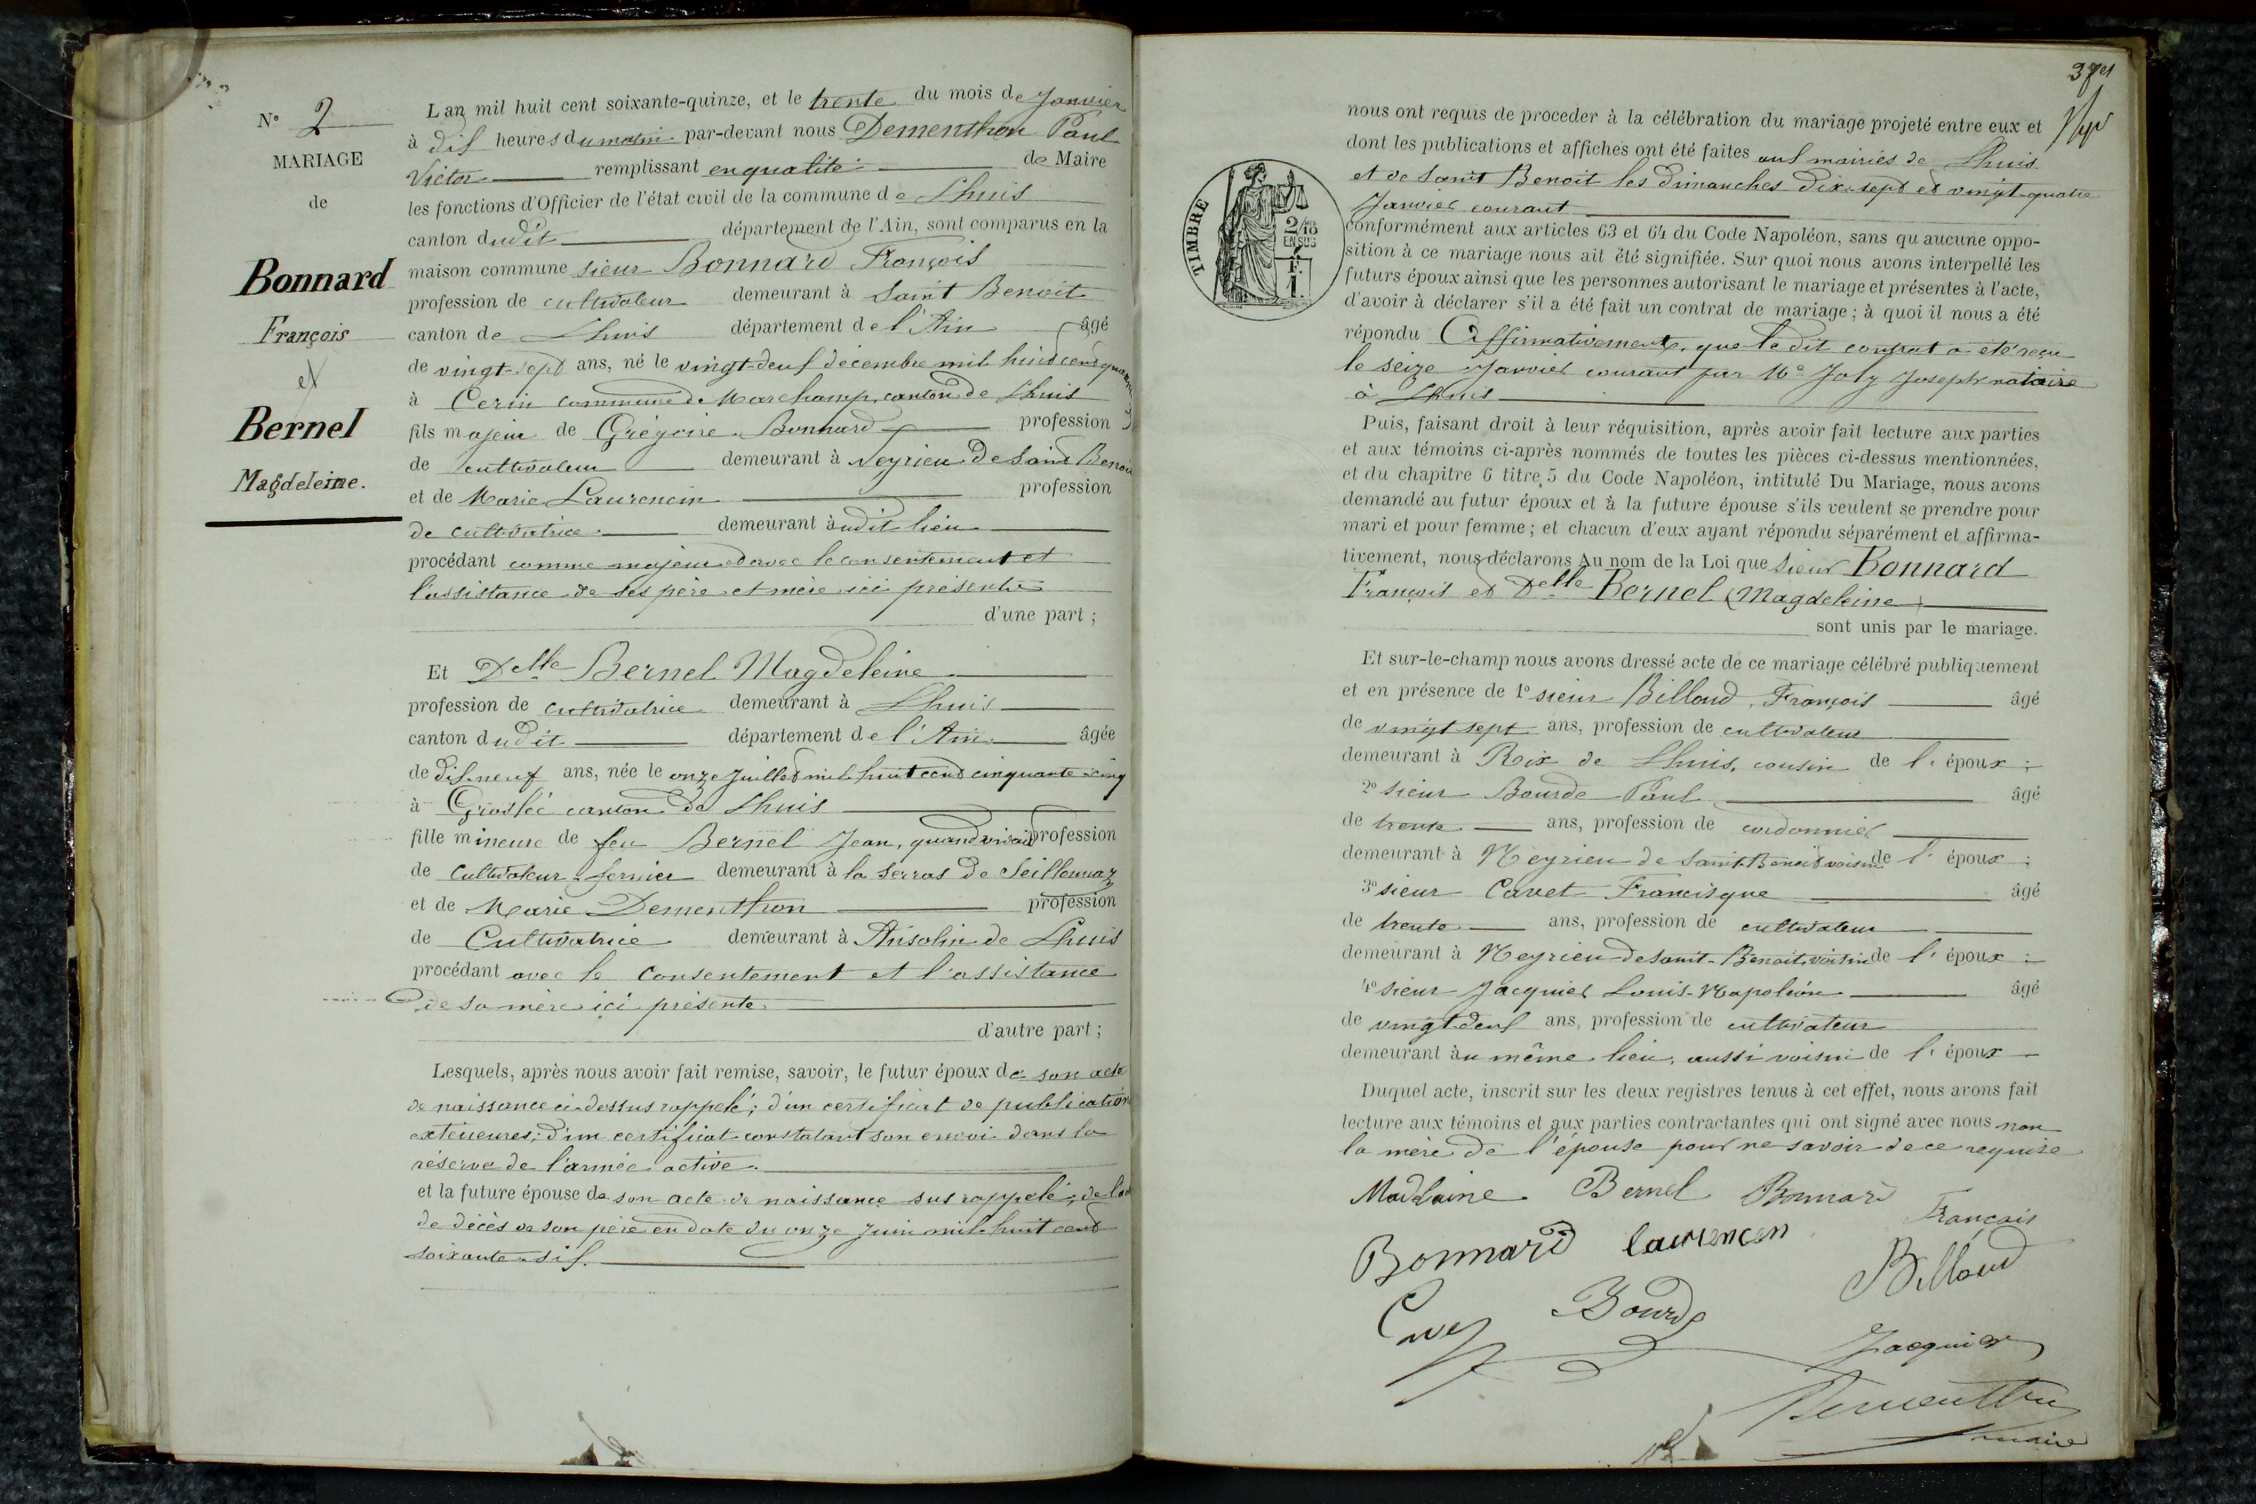 N° 2
MARIAGE
de
Bonnard
François
et
Bernel
Magdeleine.
L'an mil huit cent soixante-quinze, et le trente du mois de Janvier
à dix heures du matin par-devant nous Dementhon Paul
Victor remplissant en qualité de Maire
les fonctions d'Officier de l'état civil de la commune de Lhuis
canton dudit département de l'Ain, sont comparus en la
maison commune sieur Bonnard François
profession de cultivateur demeurant à Saint Benoit
canton de Lhuis département de l'Ain âgé
de vingt-sept ans, né le vingt-deux décembre mil huit cent
à Cerin commune de Marchamp, canton de Lhuis
fils majeur de Grégoire Bonnard profession
de cultivateur demeurant à Neyrieu de Saint Benoit
et de Marie Laurencin profession
de cultivatrice demeurant audit lieu
procédant comme majeur et avec le consentement et
l'assistance de ses père et mère ici présents
d'une part ;
Et Delle Bernel Magdeleine
profession de cultivatrice demeurant à Lhuis
canton dudit département de l'Ain âgée
de dix-neuf ans, née le onze Juillet mil huit cent cinquante-cinq
à Groslée canton de Lhuis
fille mineure de feu Bernel Jean, quand vivait profession
de cultivateur-fermier demeurant à la Serras de Seillonnaz
et de Marie Dementhon profession
de Cultivatrice demeurant à Ansolin de Lhuis
procédant avec le consentement et l'assistance
de sa mère ici présente
d'autre part ;
Lesquels, après nous avoir fait remise, savoir, le futur époux de son acte
de naissance ci-dessus rappelé ; d'un certificat de publications
extérieures ; d'un certificat constatant son envoi dans la
réserve de l'armée active.
et la future épouse de son acte de naissance sus rappelé ; de
de décès de son père en date du onze Juin mil huit cent
soixante-six.
37
nous ont requis de proceder à la célébration du mariage projeté entre eux et
dont les publications et affiches ont été faites aux mairies de Lhuis
et de Saint Benoit les dimanches dix-sept et vingt-quatre
Janvier courant
TIMBRE
2/10
EN SUS
F.
1.
conformément aux articles 63 et 64 du Code Napoléon, sans qu'aucune oppo-
sition à ce mariage nous ait été signifiée. Sur quoi nous avons interpellé les
futurs époux ainsi que les personnes autorisant le mariage et présentes à l'acte,
d'avoir à déclarer s'il a été fait un contrat de mariage ; à quoi il nous a été
répondu Affirmativement, que le dit contrat a été reçu
le seize Janvier courant par Me Joly Joseph notaire
à Lhuis
Puis, faisant droit à leur réquisition, après avoir fait lecture aux parties
et aux témoins ci-après nommés de toutes les pièces ci-dessus mentionnées,
et du chapitre 6 titre 5 du Code Napoléon, intitulé Du Mariage, nous avons
demandé au futur époux et à la future épouse s'ils veulent se prendre pour
mari et pour femme ; et chacun d'eux ayant répondu séparément et affirma-
tivement, nous déclarons Au nom de la Loi que sieur Bonnard
François et Delle Bernel Magdeleine
sont unis par le mariage.
Et sur-le-champ nous avons dressé acte de ce mariage célébré publiquement
et en présence de 1° sieur Billoud, François âgé
de vingt sept ans, profession de cultivateur
demeurant à Rix de Lhuis, cousin de l'époux ;
2° sieur Bourde Paul âgé
de trente ans, profession de cordonnier
demeurant à Neyrieu de Saint-Benoit voisin de l'époux ;
3° sieur Cavet Francisque âgé
de trente ans, profession de cultivateur
demeurant à Neyrieu de Saint-Benoit, voisin de l'époux ;
4° sieur Jacquier Louis-Napoléon âgé
de vingt-deux ans, profession de cultivateur
demeurant au même lieu, aussi voisin de l'époux
Duquel acte, inscrit sur les deux registres tenus à cet effet, nous avons fait
lecture aux témoins et aux parties contractantes qui ont signé avec nous non
la mère de l'épouse pour ne savoir de ce requise
Madelaine Bernel Bonnard
François
Bonnard laurencen
Billoud
Cavet Bourde
Jacquier
Dementhon
maire